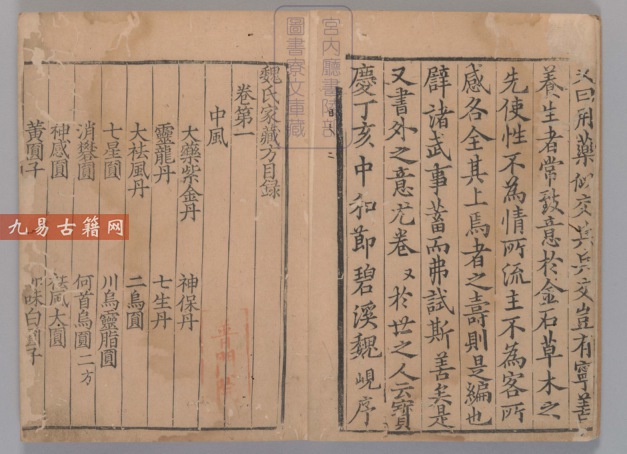 又曰用藥似交兵兵交豈有寧善
養生者常致意於金石草木之
先使性不為情所流主不為客所
感各全其上焉者之壽則是編也
辟諸武事蓄而弗試斯善矣是
又書外之意尤卷又於世之人云寳
慶丁亥中和節碧溪魏峴序
宮內廳書陵部
圖書寮文庫藏
魏氏家藏方目錄
卷第一
中風
大藥紫金丹 神保丹
靈龍丹 七生丹
大祛風丹 二烏圓
七星圓 川烏靈脂圓
消攀圓 何首烏圓二方
神感圓 祛風大圓
黃圓子 味白圓子
九易古籍网